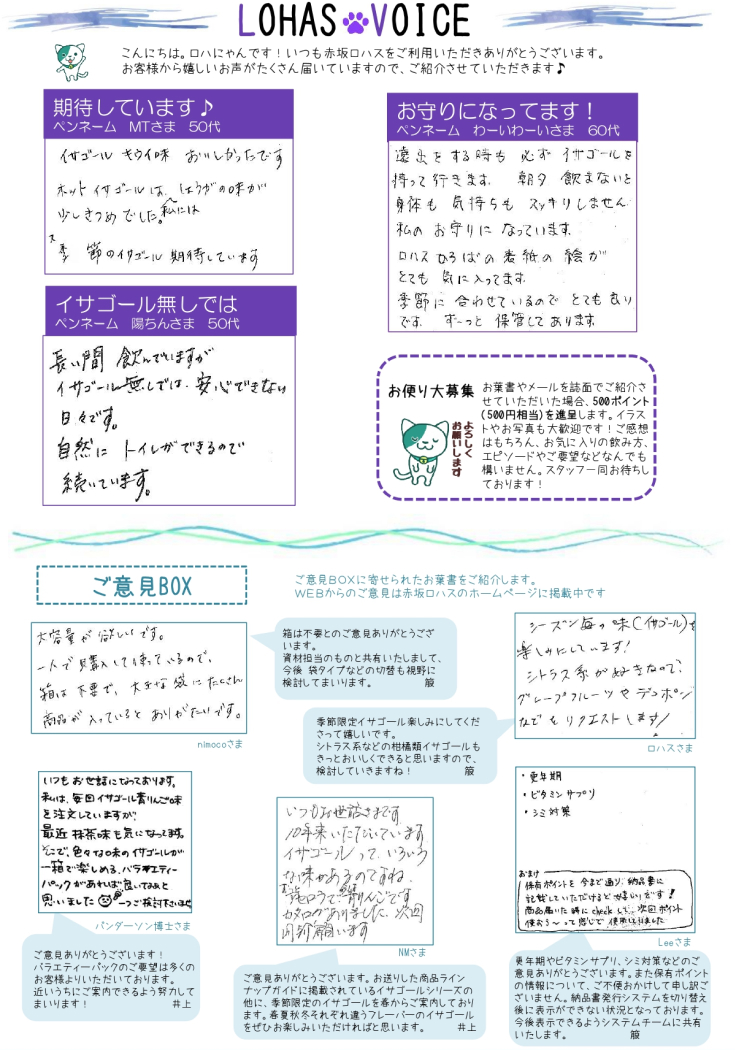 LOHAS VOICE
こんにちは。ロハにゃんです！いつも赤坂ロハスをご利用いただきありがとうございます。
お客様から嬉しいお声がたくさん届いていますので、ご紹介させていただきます♪
期待しています♪
ペンネーム　MTさま　50代
イサゴール キウイ味 おいしかったです
ホットイサゴールは、しょうがの味が
少しきつめでした。私には
季節のイサゴール 期待しています
イサゴール無しでは
ペンネーム　陽ちんさま　50代
長い間 飲んでいますが
イサゴール無しでは、安心できない
日々です。
自然に トイレができるので
続いています。
お守りになってます！
ペンネーム　わーいわーいさま　60代
遠出をする時も 必ず イサゴールを
持って行きます。 朝夕 飲まないと
身体も 気持ちも スッキリしません
私の お守りに なっています。
ロハスひろばの表紙の 絵が
とても 気に入ってます。
季節に 合わせているので とても
です。 ず～っと 保管してあります。
お便り大募集
お葉書やメールを誌面でご紹介さ
せていただいた場合、500ポイント
(500円相当)を進呈します。イラス
トやお写真も大歓迎です！ご感想
はもちろん、お気に入りの飲み方、
エピソードやご要望などなんでも
構いません。スタッフ一同お待ちし
ております！
よろしく
お願いします
ご意見BOX
ご意見BOXに寄せられたお葉書をご紹介します。
WEBからのご意見は赤坂ロハスのホームページに掲載中です
大容量が欲しいです。
一人で購入して使っているので、
箱は不要で、大きな袋にたくさん
商品が入っているとありがたいです。
nimocoさま
箱は不要とのご意見ありがとうござ
います。
資材担当のものと共有いたしまして、
今後 袋タイプなどの切替も視野に
検討してまいります。
シーズン毎の味(イサゴール)を
楽しみにしています！
シトラス系がお好きなので、
グレープフルーツやデコポン
などをリクエストします！
ロハスさま
季節限定イサゴール楽しみにしてくだ
さって嬉しいです。
シトラス系などの柑橘類イサゴールも
きっとおいしくできると思いますので、
検討していきますね！
いつもお世話になっております。
私は、毎回イサゴール青りんご味
を注文していますが、
最近 抹茶味も気になってます。
そこで、色々な味のイサゴールが
一箱で楽しめる、バラエティー
パックがあれば良いなぁと
思いました 一つご検討下さいませ
パンダーソン博士さま
ご意見ありがとうございます！
バラエティーパックのご要望は多くの
お客様よりいただいております。
近いうちにご案内できるよう努力して
まいります！　井上
いつもお世話さまです
10年来いただいています
イサゴールって、いろいろ
な味があるのですね。
カタログがありました、次回
NMさま
ご意見ありがとうございます。お送りした商品ライン
ナップガイドに掲載されているイサゴールシリーズの
他に、季節限定のイサゴールを春からご案内しており
ます。春夏秋冬それぞれ違うフレーバーのイサゴール
をぜひお楽しみいただければと思います。　井上
・更年期
・ビタミンサプリ
・シミ対策
おまけ
保有ポイントを今まで通り、納品書に
記載していただけるとお嬉しいです！
商品届いた時にcheckして、次回ポイント
使おう～って感じで使用してました
Leeさま
更年期やビタミンサプリ、シミ対策などのご
意見ありがとうございます。また保有ポイント
の情報について、ご不便おかけして申し訳ご
ざいません。納品書発行システムを切り替え
後に表示ができない状況となっております。
今後表示できるようシステムチームに共有
いたします。